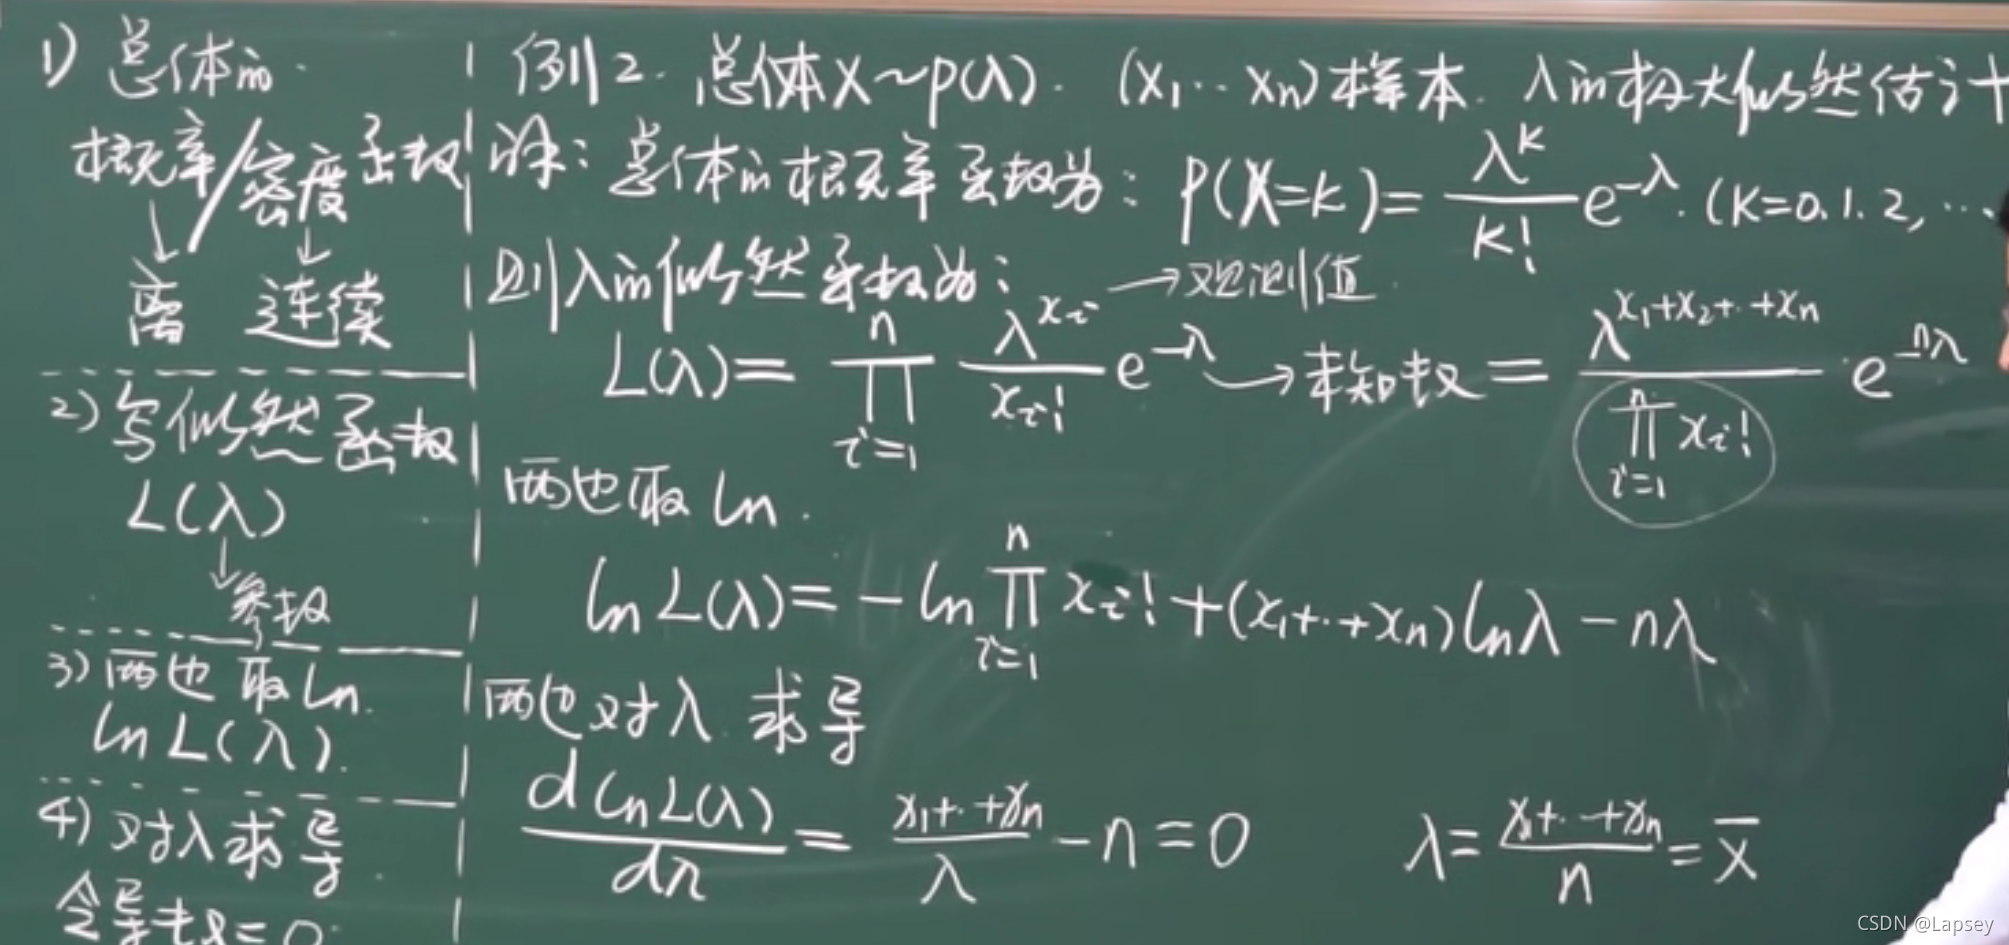 1) 总体的.
概率/密度函数
↓ ↓
离 连续
2) 写似然函数
L(λ)
↓
参数
3) 两边取ln.
ln L(λ).
4) 对λ求导.
令导数=0.
例2. 总体X~P(λ). (X₁…Xn)样本. λ的极大似然估计
解: 总体的概率函数为: P(X=k)=λ^k/k! e^{-λ}. (K=0.1.2,…
则λ的似然函数为: →观测值.
L(λ)=∏_{i=1}^{n} λ^{x_i}/x_i! e^{-λ} →未知数 = λ^{x₁+x₂+··+x_n}/∏_{i=1}^{n} x_i! · e^{-nλ}
两边取ln.
ln L(λ)=-ln ∏_{i=1}^{n} x_i!+(x₁+··+x_n)lnλ-nλ
两边对λ求导
d ln L(λ)/dλ = x₁+··+x_n/λ -n=0 λ=x₁+··+x_n/n=x̄
CSDN @Lapsey